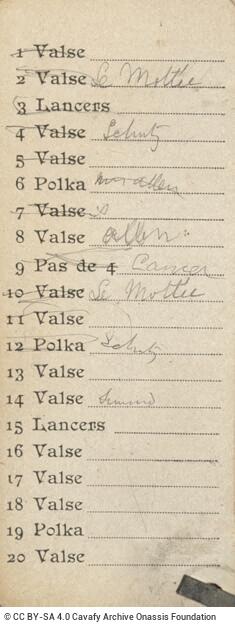 1 Valse
2 Valse Le Mottée
3 Lancers
4 Valse Schutz
5 Valse
6 Polka Allen
7 Valse
8 Valse Allen
9 Pas de 4
10 Valse Le Mottee
11 Valse
12 Polka Schutz
13 Valse
14 Valse
15 Lancers
16 Valse
17 Valse
18 Valse
19 Polka
20 Valse
© CC BY-SA 4.0 Cavafy Archive Onassis Foundation